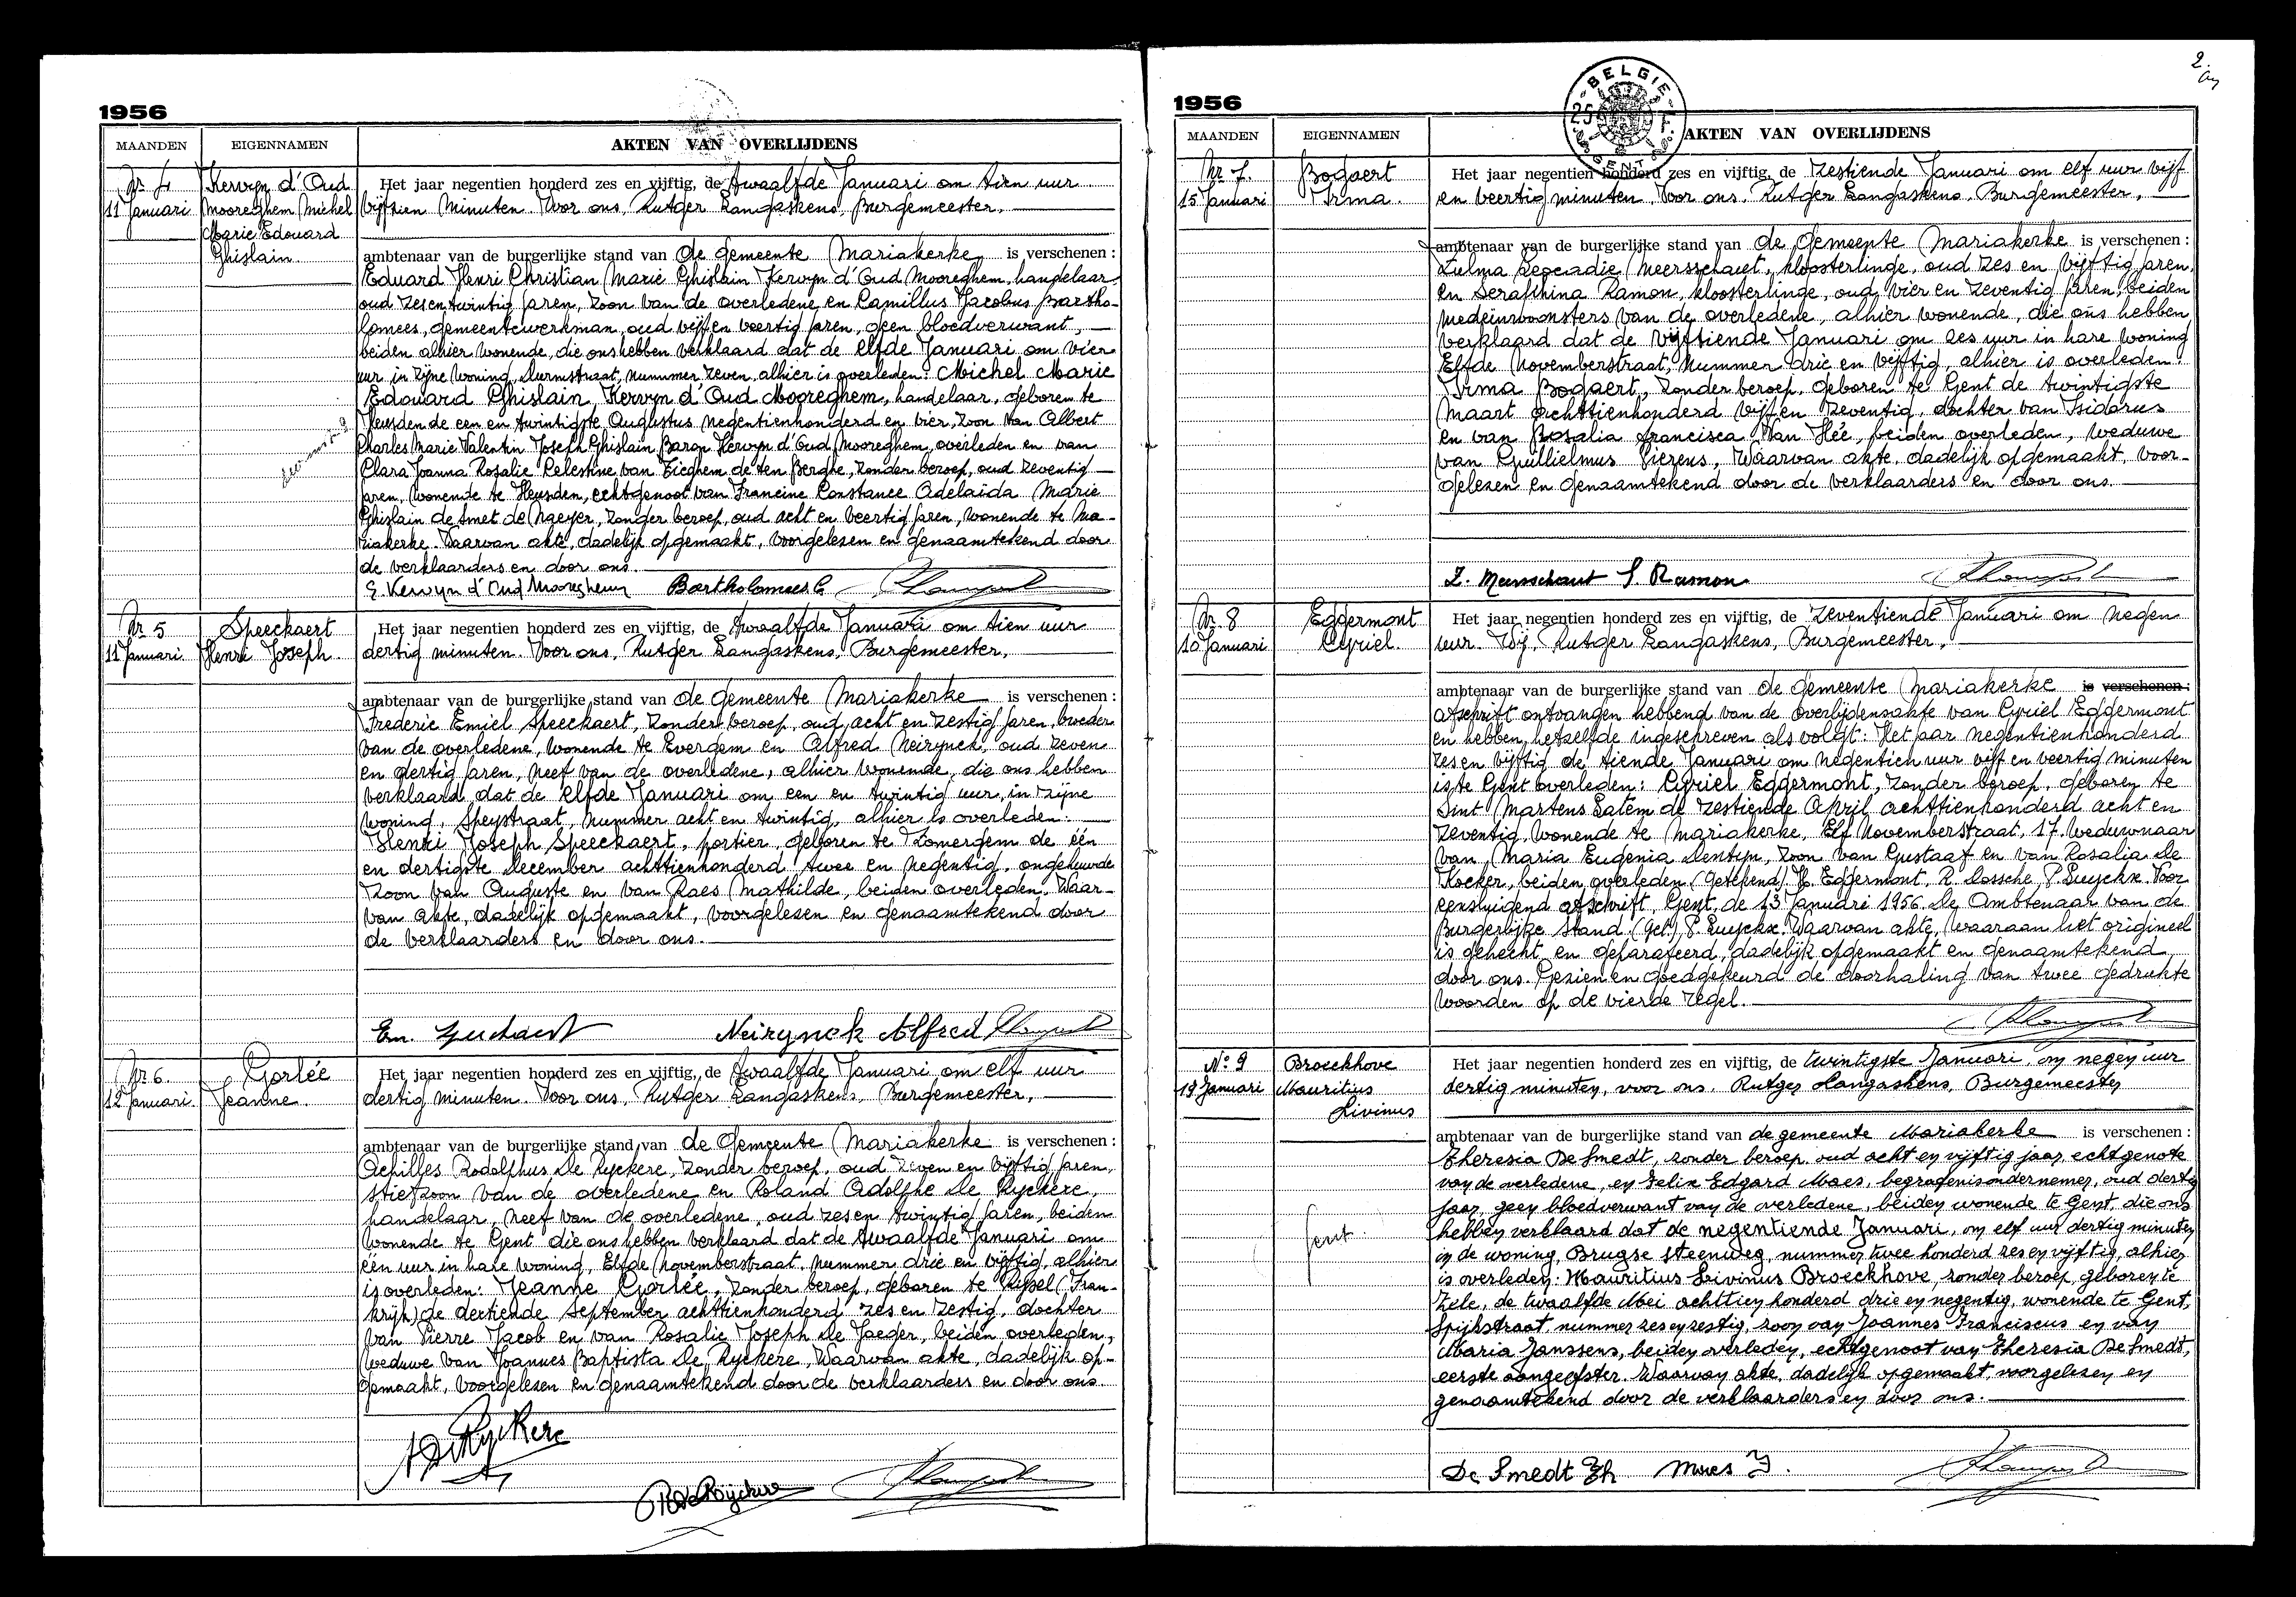 1956
MAANDEN EIGENNAMEN AKTEN VAN OVERLIJDENS
Nr 4
11 Januari
Kervyn d'Oud
Mooreghem Michel
Marie Edouard
Ghislain.
Het jaar negentien honderd zes en vijftig, de twaalfde Januari om tien uur
vijftien minuten. Voor ons, Rutger Langaskens, Burgemeester,
ambtenaar van de burgerlijke stand van de gemeente Mariakerke is verschenen :
Eduard Henri Christian Marie Ghislain Kervyn d'Oud Mooreghem, handelaar,
oud zesentwintig jaren, zoon van de overledene en Camillus Jacobus Bartho-
lomees, gemeentewerkman, oud vijf en veertig jaren, geen bloedverwant,
beiden alhier wonende, die ons hebben verklaard dat de elfde Januari om vier
uur in zijne woning, nummer zeven, alhier is overleden: Michel Marie
Edouard Ghislain Kervyn d'Oud Mooreghem, handelaar, geboren te
Heusden de een en twintigste Augustus negentienhonderd en vier, zoon van Albert
Charles Marie Valentin Joseph Ghislain Baron Kervyn d'Oud Mooreghem, overleden en van
Clara Joanna Rosalie Celestine van Tieghem de ten Berghe, zonder beroep, oud zeventig
jaren, wonende te Heusden, echtgenoot van Francine Constance Adelaïda Marie
Ghislain de Smet de Naeyer, zonder beroep, oud acht en veertig jaren, wonende te Ma-
riakerke. Waarvan akte, dadelijk opgemaakt, voorgelezen en genaamtekend door
de verklaarders en door ons.
E. Kervyn d'Oud Mooreghem Bartholomees C
Nr 5
11 Januari.
Speeckaert
Henri Joseph.
Het jaar negentien honderd zes en vijftig, de twaalfde Januari om tien uur
dertig minuten. Voor ons, Rutger Langaskens, Burgemeester,
ambtenaar van de burgerlijke stand van de gemeente Mariakerke is verschenen :
Frederic Emiel Speeckaert, zonder beroep, oud acht en zestig jaren, broeder
van de overledene, wonende te Evergem en Alfred Neirynck, oud zeven
en dertig jaren, neef van de overledene, alhier wonende, die ons hebben
verklaard dat de elfde Januari om een en twintig uur, in zijne
woning, Speystraat, nummer acht en twintig, alhier is overleden:
Henri Joseph Speeckaert, portier, geboren te Zomergem de één
en dertigste December achttienhonderd twee en negentig, ongehuwde
zoon van Auguste en van Raes Mathilde, beiden overleden. Waar-
van akte, dadelijk opgemaakt, voorgelezen en genaamtekend door
de verklaarders en door ons.
Em. Speeckaert Neirynck Alfred
Nr 6.
12 Januari.
Gorlée
Jeanne.
Het jaar negentien honderd zes en vijftig, de twaalfde Januari om elf uur
dertig minuten. Voor ons, Rutger Langaskens, Burgemeester,
ambtenaar van de burgerlijke stand van de Gemeente Mariakerke is verschenen :
Achilles Rodolphus De Ryckere, zonder beroep, oud zeven en vijftig jaren,
stiefzoon van de overledene en Roland Adolphe De Ryckere,
handelaar, neef van de overledene, oud zesen twintig jaren, beiden
wonende te Gent die ons hebben verklaard dat de twaalfde Januari om
één uur in hare woning, Elfde Novemberstraat, nummer drie en vijftig, alhier
is overleden: Jeanne Gorlée, zonder beroep, geboren te Rijsel (Fran-
krijk) de dertiende September achttienhonderd zes en zestig, dochter
van Pierre Jacob en van Rosalie Joseph De Jaeger, beiden overleden,
weduwe van Joannes Baptista De Ryckere, Waarvan akte, dadelijk op-
gemaakt, voorgelezen en genaamtekend door de verklaarders en door ons.
A De Ryckere
R De Ryckere
2.
BELGIE
GENT
1956
MAANDEN EIGENNAMEN AKTEN VAN OVERLIJDENS
Nr 7.
15 Januari
Bogaert
Irma.
Het jaar negentien honderd zes en vijftig, de zestiende Januari om elf uur vijf
en veertig minuten. Voor ons, Rutger Langaskens, Burgemeester,
ambtenaar van de burgerlijke stand van de Gemeente Mariakerke is verschenen :
Zulma Leocadie Meersschaut, kloosterlinge, oud zes en vijftig jaren,
en Seraphina Ramon, kloosterlinge, oud vier en zeventig jaren, beiden
medeinwoonsters van de overledene, alhier wonende, die ons hebben
verklaard dat de vijftiende Januari om zes uur in hare woning
Elfde Novemberstraat, nummer drie en vijftig, alhier is overleden:
Irma Bogaert, zonder beroep, geboren te Gent de twintigste
Maart achttienhonderd vijf en zeventig, dochter van Isidorus
en van Rosalia Francisca Van Hée, beiden overleden, weduwe
van Guillielmus Lierens, Waarvan akte, dadelijk opgemaakt, voor-
gelezen en genaamtekend door de verklaarders en door ons.
Z. Meersschaut S. Ramon
Nr 8
10 Januari
Eggermont
Cyriel.
Het jaar negentien honderd zes en vijftig, de zeventiende Januari om negen
uur. Wij, Rutger Langaskens, Burgemeester,
ambtenaar van de burgerlijke stand van de Gemeente Mariakerke is verschenen :
afschrift ontvangen hebbend van de overlijdensakte van Cyriel Eggermont
en hebben hetzelfde ingeschreven als volgt: Het jaar negentienhonderd
zes en vijftig de tiende Januari om negentien uur vijf en veertig minuten
is te Gent overleden: Cyriel Eggermont, zonder beroep, geboren te
Sint Martens Latem de zestiende April achttienhonderd acht en
zeventig, wonende te Mariakerke, Elf Novemberstraat, 17, weduwnaar
van Maria Eugenia Dentyn, zoon van Gustaaf en van Rosalia De
Kocker, beiden overleden (Getekend) H. Eggermont, R. Lossche, P. Luyckx. Voor
eensluidend afschrift, Gent, de 13 Januari 1956. De Ambtenaar van de
Burgerlijke Stand (Get.) P. Luyckx. Waarvan akte, waaraan het origineel
is gehecht en geparafeerd, dadelijk opgemaakt en genaamtekend
door ons. Gezien en goedgekeurd de doorhaling van twee gedrukte
woorden op de vierde regel.
N° 9
19 Januari
Broeckhove
Mauritius
Livinus
Gent.
Het jaar negentien honderd zes en vijftig, de twintigste Januari, om negen uur
dertig minuten, voor ons, Rutger Langaskens, Burgemeester
ambtenaar van de burgerlijke stand van de gemeente Mariakerke is verschenen :
Theresia De Smedt, zonder beroep, oud acht en vijftig jaar, echtgenote
van de overledene, en Felix Edgard Maes, begrafenisondernemer, oud dertig
jaar, geen bloedverwant van de overledene, beiden wonende te Gent, die ons
hebben verklaard dat de negentiende Januari, om elf uur dertig minuten
in de woning, Brugse steenweg, nummer twee honderd zes en vijftig, alhier
is overleden: Mauritius Livinus Broeckhove, zonder beroep, geboren te
Zele, de twaalfde Mei achttien honderd drie en negentig, wonende te Gent,
Spijkstraat, nummer zes en zestig, zoon van Joannes Franciscus en van
Maria Janssens, beiden overleden, echtgenoot van Theresia De Smedt,
eerste aangeefster. Waarvan akte, dadelijk opgemaakt, voorgelezen en
genaamtekend door de verklaarders en door ons.
De Smedt Th Maes F.